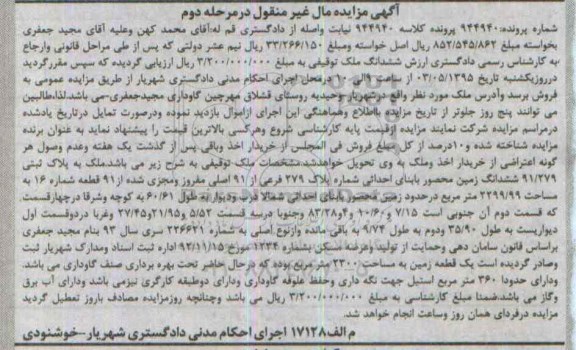 آگهی مزایده مال غیر منقول در مرحله دوم
شماره پرونده:۹۴۴۹۴۰ پرونده کلاسه ۹۴۴۹۴۰ نیابت واصله از دادگستری قم له:آقای محمد کهن وعلیه آقای مجید جعفری
بخواسته مبلغ ۸۵۲/۵۴۵/۸۶۲ ریال اصل خواسته ومبلغ ۳۳/۲۶۶/۱۵۰ ریال نیم عشر دولتی که پس از طی مراحل قانونی وارجاع
به کارشناس رسمی دادگستری ارزش ششدانگ ملک توقیفی به مبلغ ۳/۲۰۰/۰۰۰/۰۰۰ ریال ارزیابی گردیده که سپس مقررگردید
درروزیکشنبه تاریخ ۰۳/۰۵/۱۳۹۵ از ساعت ۹ الی ۱۰ درمحل اجرای احکام مدنی دادگستری شهریار از طریق مزایده عمومی به
فروش برسد وآدرس ملک مورد نظر واقع در شهریار وحیدیه روستای قشلاق مهرچین گاوداری مجیدجعفری-می باشد.لذا،طالبین
می توانند پنج روز جلوتر از تاریخ مزایده بااطلاع وهماهنگی این اجرای ازاموال بازدید نموده ودرصورت تمایل درتاریخ یادشده
درمراسم مزایده شرکت نمایند مزایده ازقیمت پایه کارشناسی شروع وهرکسی بالاترین قیمت را پیشنهاد نماید به عنوان برنده
مزایده شناخته شده و۱۰درصد از کل مبلغ فروش فی المجلس از خریدار اخذ وباقی پس از گذشت یک هفته وعدم وصول هر
گونه اعتراضی از خریدار اخذ وملک به وی تحویل خواهدشد.مشخصات ملک توقیفی به شرح زیر می باشد.ملک به پلاک ثبتی
۹۱/۲۷۹ ششدانگ زمین محصور بابنای احداثی شماره پلاک ۲۷۹ فرعی از ۹۱ اصلی مفروز ومجزی شده از ۹۱ قطعه شماره ۱۶ به
مساحت ۲۲۹۹/۹۹ متر مربع درحدود زمین محصور بابنای احداثی شمالا درب ودیواریه طول ۶۰/۶۱ به کوچه وشرقا درچهارقسمت
که قسمت دوم آن جنوبی است ۷/۱۵ و ۱۰/۶۰ و۴و۸۳/۲۸ وجنوبا درسه قسمت ۵/۵۲ و۲۱/۹۵و۲۷/۴۵ وغربا دردوقسمت اول
دیواریست به طول ۳۵/۹۰ ودوم به طول ۹/۷۴ به باقی مانده وازنوع اصلی به شماره ۲۲۶۶۲۱ سری سال ۹۳ بنام مجید جعفری
براساس قانون سامان دهی وحمایت از تولید وعرضه مسکن بشماره ۱۲۳۴ مورخ ۹۲/۱۱/۱۵ اداره ثبت اسناد ومدارک شهریار ثبت
وصادر گردیده است یک قطعه زمین به مساحت ۲۳۰۰ متر مربع بوده که در حال حاضر تحت بهره برداری صنف گاوداری می باشد.
ودارای حدودا ۳۶۰ متر مربع استیل جهت نگه داری وحفظ علوفه گاوداری ودارای دوطبقه کارگری نیزمی باشد ودارای آب برق
وگاز می باشد.ضمنا مبلغ کارشناسی به مبلغ ۳/۲۰۰/۰۰۰/۰۰۰ ریال می باشد وچنانچه روزمزایده مصادف باروز تعطیل گردید
مزایده درفردای همان روز وساعت انجام خواهد شد.
م الف۱۷۱۲۸ اجرای احکام مدنی دادگستری شهریار-خوشنودی